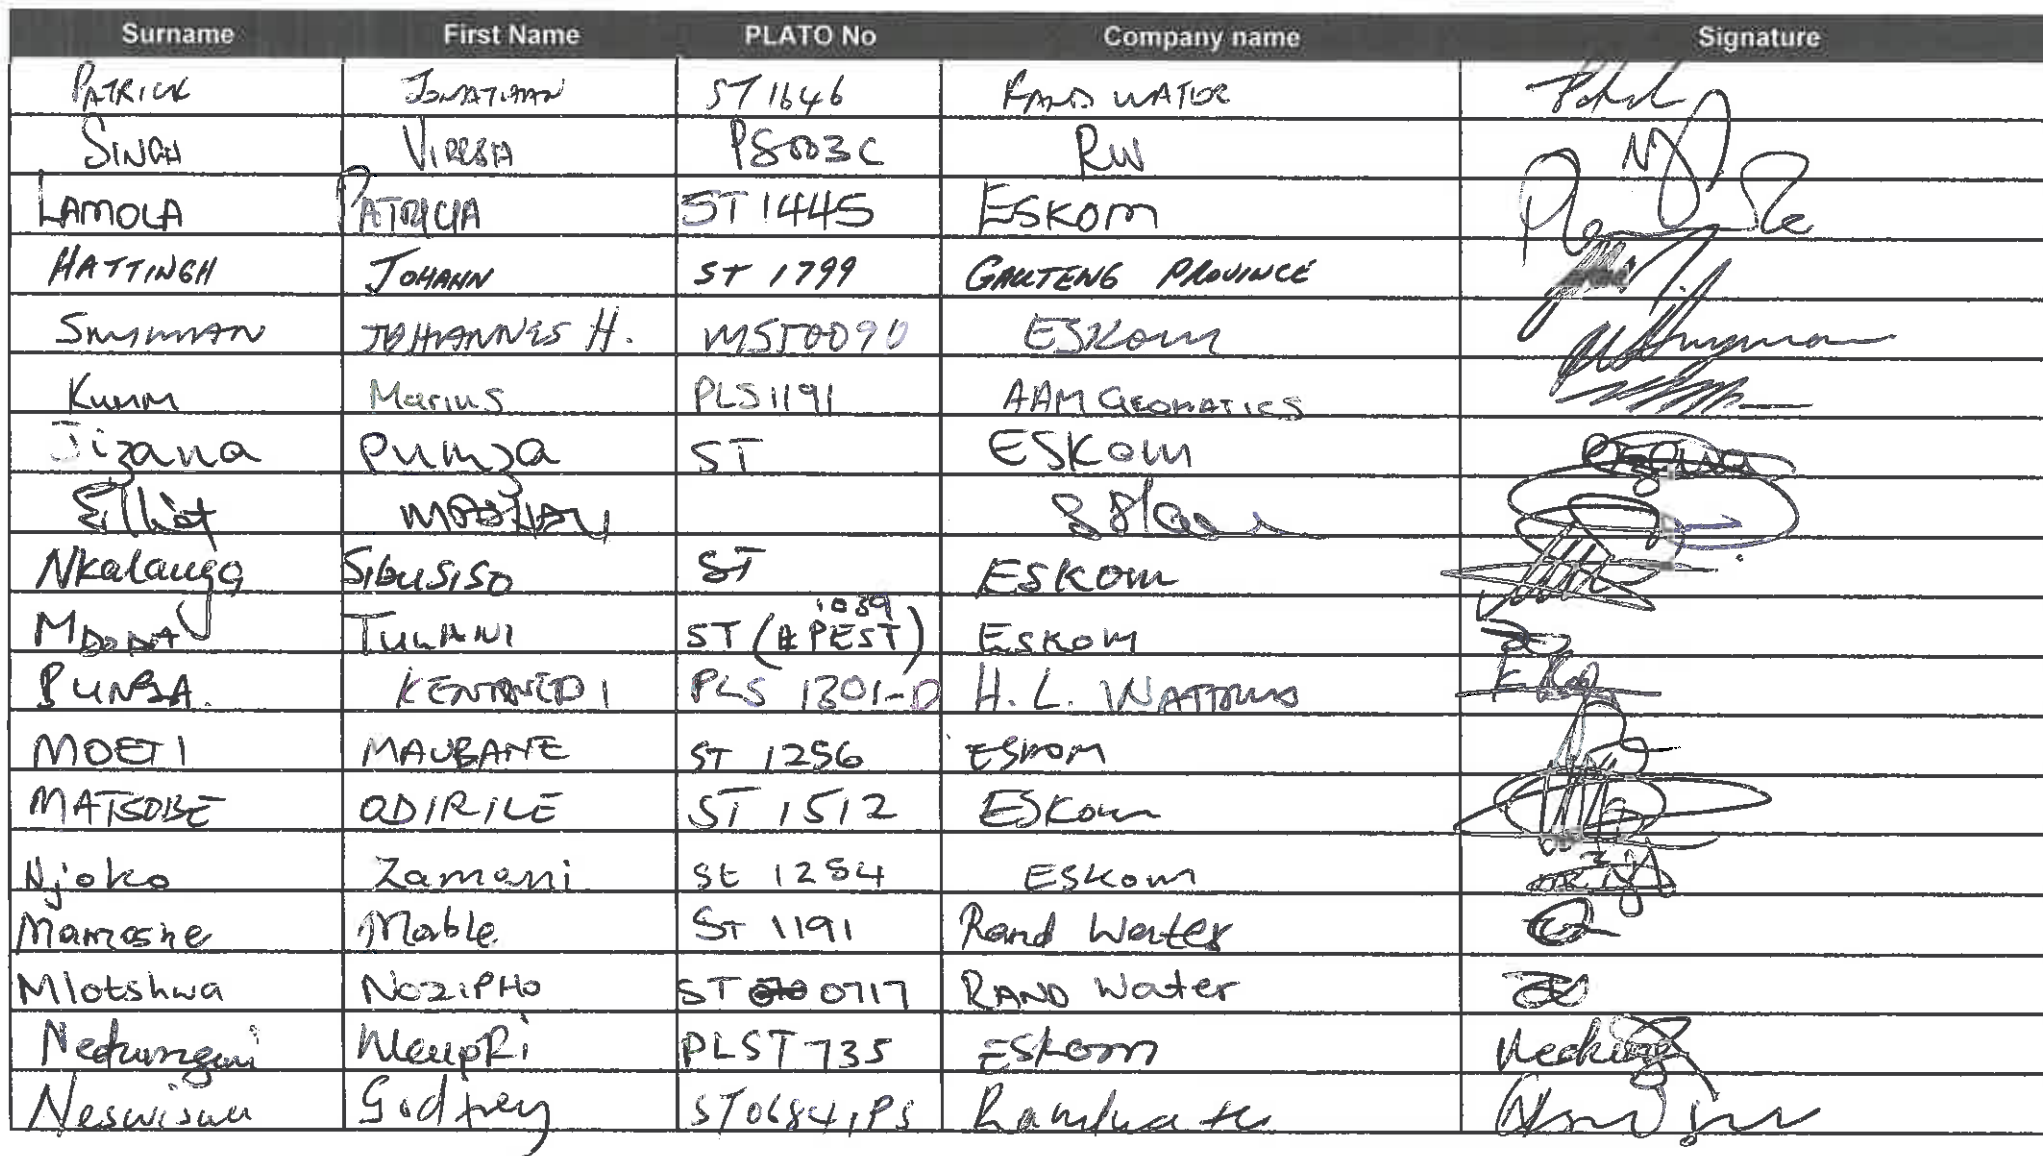 Surname First Name PLATO No Company name Signature
PATRICK JONATHAN ST 1646 RAND WATER
SINGH VIRESH PS003C RW
LAMOLA PATRICIA ST 1445 ESKOM
HATTINGH JOHANN ST 1799 GAUTENG PROVINCE
JOHANNES H. MST0090 ESKom
Kumm Marius PLS1191 AAM GEOMATICS
Jizana Pumza ST ESKom
Elliot
Nkalanga Sibusiso ST ESKom
MDODA TULANI ST (# PEST 1039) ESKOM
BUNGA. PLS 1301-D H. L.
MOETI MAUBANE ST 1256 ESKOM
MATSOBE ODIRILE ST 1512 ESKom
Njoko Zamani SE 1254 ESKom
Mamashe Mable ST 1191 Rand Water
Mlotshwa NOZIPHO ST 0717 RAND Water
PLST 735 ESKom
Neswiswi Godfrey ST0684, PS Randwater